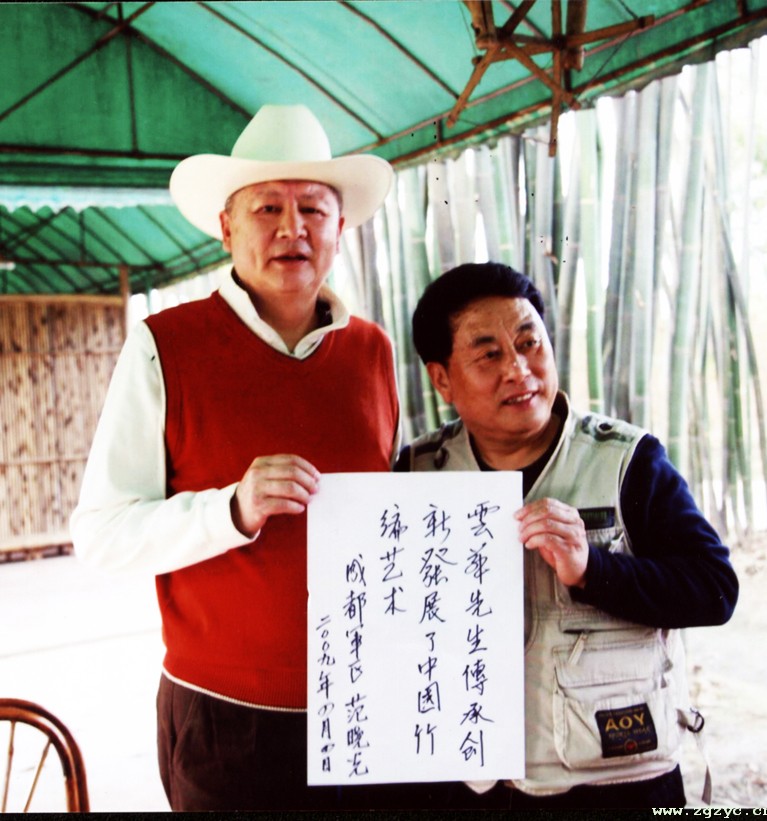 雲華先生傳承创
新發展了中國竹
编艺术
成都軍区 范晓光
二〇〇九年四月四日
AOY
www.zgzyc.cn